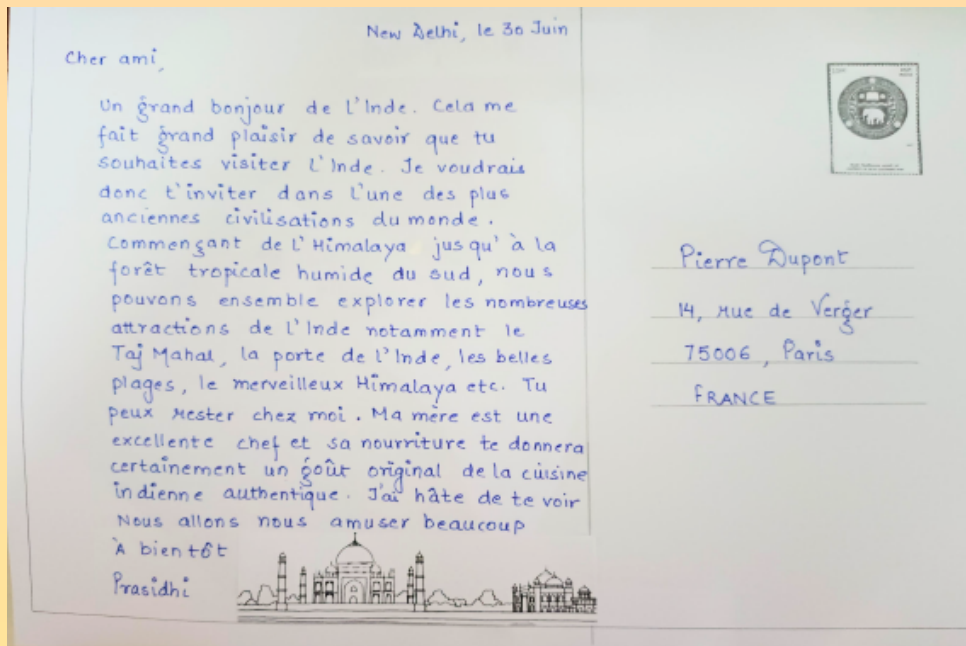 New Delhi, le 30 Juin
Cher ami,
Un grand bonjour de l'Inde. Cela me
fait grand plaisir de savoir que tu
souhaites visiter l'Inde. Je voudrais
donc t'inviter dans l'une des plus
anciennes civilisations du monde.
Commençant de l'Himalaya jusqu'à la
forêt tropicale humide du sud, nous
pouvons ensemble explorer les nombreuses
attractions de l'Inde notamment le
Taj Mahal, la porte de l'Inde, les belles
plages, le merveilleux Himalaya etc. Tu
peux rester chez moi. Ma mère est une
excellente chef et sa nourriture te donnera
certainement un goût original de la cuisine
indienne authentique. J'ai hâte de te voir
Nous allons nous amuser beaucoup
À bientôt
Prasidhi
Pierre Dupont
14, rue de Verger
75006, Paris
FRANCE